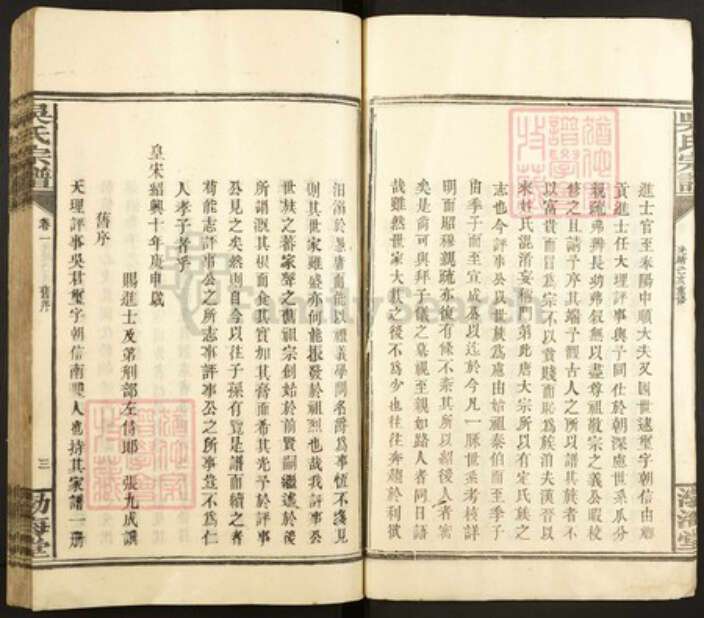 吳氏宗譜
渤海堂
進士官至奉陽中順大夫又因世遠聖字朝信由
貢進士任大理評事與予同仕於朝深慮世系瓜分
親疏弗辨長幼弗叙無以盡尊祖敬宗之義公暇校
修之且請予序其端予觀古人之所以譜其族者不
以富貴而冒爲宗不以貧賤而恥爲族洎夫漢晉以
來姓氏混淆妄稱門第此唐大宗所以有定氏族之
志也今評事公以世族爲慮由始祖泰伯而至季子
由季子而至宣成爲以迄於今凡一脈世系考核詳
明而昭穆親疏亦彼有條不紊其所以紹後人者宏
矣是尚可與拜子儀之墓視至親如路人者同日語
哉雖然世家大族之後不爲少也往往奔趨於利欲
汨溺於愚濁而能以禮義學問名爵爲事恆不淺見
則其世家雖盛亦何能振發於祖烈也哉我評事公
世族之蕃家聲之舊祖宗創始於前賢嗣繼述於後
所謂溉其根而食其實加其膏而希其光予於評事
公見之矣然則自今以往子孫有覽是譜而續之者
苟能志評事公之所志事評事公之所事豈不爲仁
人孝子者乎
皇宋紹興十年庚申歲
賜進士及第刑部左侍郎 張九成譔
舊序
大理評事吳君聖字朝信南雙人也持其家譜一册
吳氏宗譜
卷一
舊序
三
渤海堂
FamilySearch